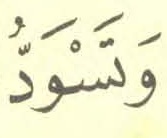 وَتَسْوَدُّ